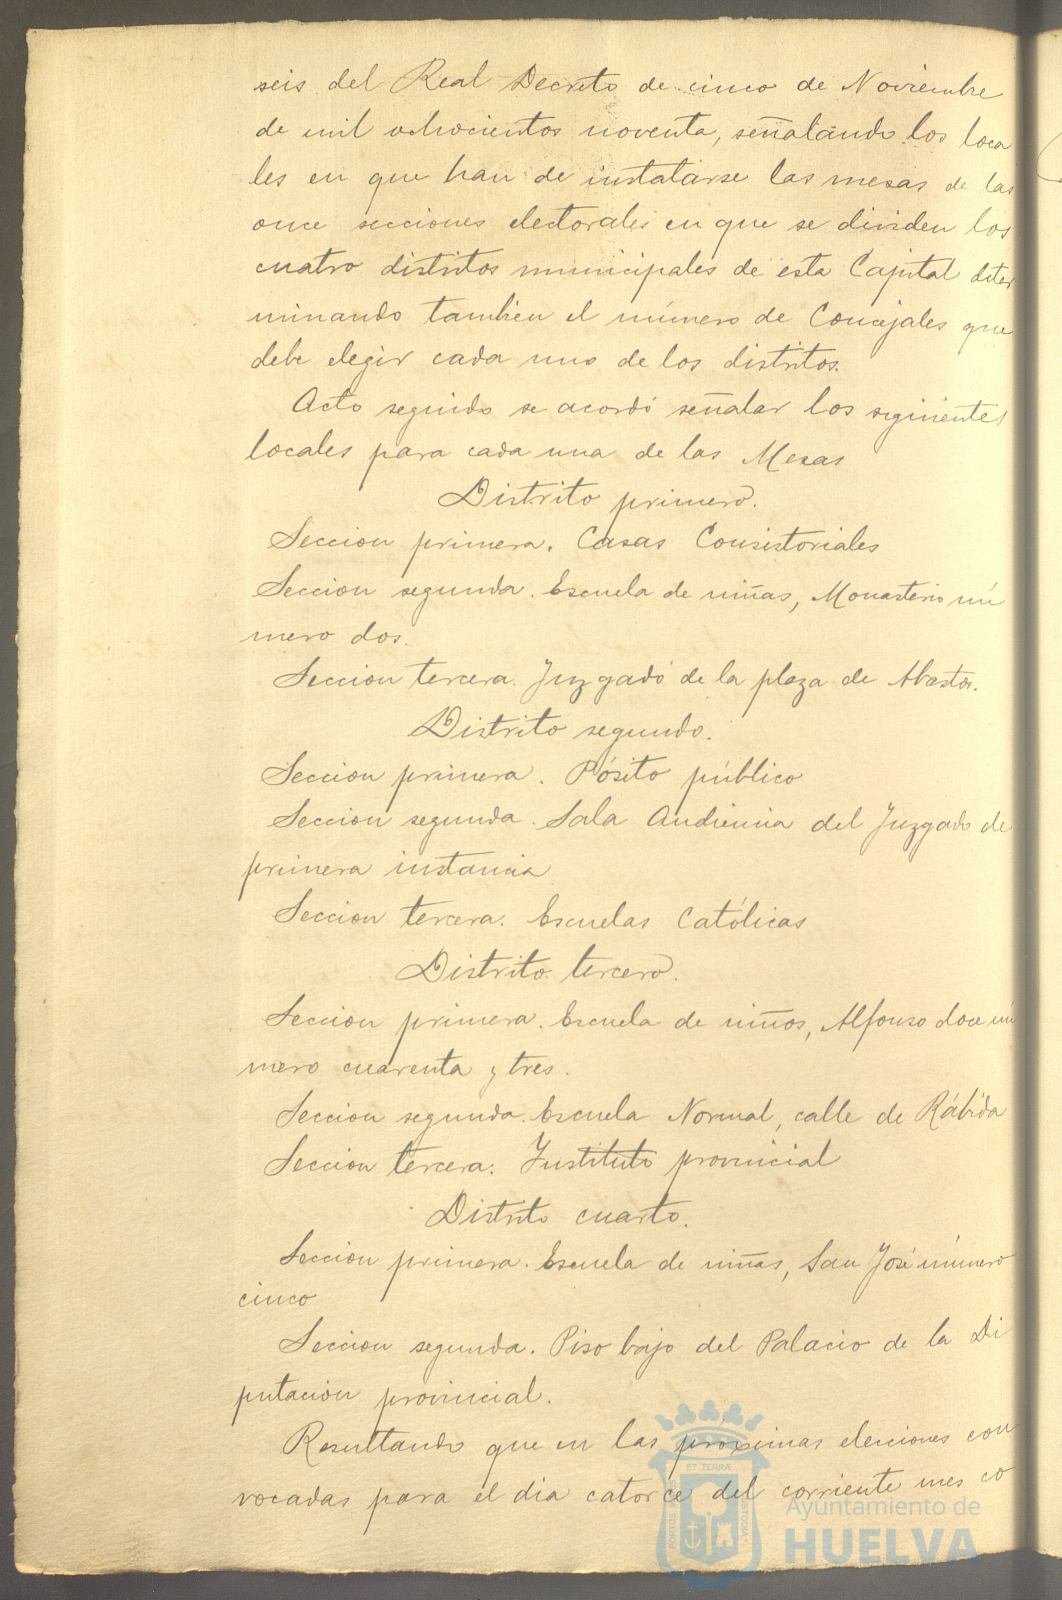 seis del Real Decreto de cinco de Noviembre
de mil ochocientos noventa, señalando los loca
les en que han de instalarse las mesas de las
once secciones electorales en que se dividen los
cuatro distritos municipales de esta Capital deter
minando tambien el número de Concejales que
debe elegir cada uno de los distritos.
Acto seguido se acordó señalar los siguientes
locales para cada una de las Mesas
Distrito primero.
Seccion primera. Casas Consistoriales
Seccion segunda. Escuela de niñas, Monasterio nú
mero dos.
Seccion tercera. Juzgado de la plaza de Abastos.
Distrito segundo.
Seccion primera. Pósito público
Seccion segunda. Sala Audiencia del Juzgado de
primera instancia
Seccion tercera. Escuelas Católicas
Distrito tercero.
Seccion primera. Escuela de niños, Alfonso doce nú
mero cuarenta y tres.
Seccion segunda. Escuela Normal, calle de Rábida
Seccion tercera. Instituto provincial
Distrito cuarto.
Seccion primera. Escuela de niñas, San José número
cinco
Seccion segunda. Piso bajo del Palacio de la Di
putacion provincial.
Resultando que en las próximas elecciones con
vocadas para el dia catorce del corriente mes co
PORTUS MARIS ET TERRAE CUSTODIA
Ayuntamiento de
HUELVA